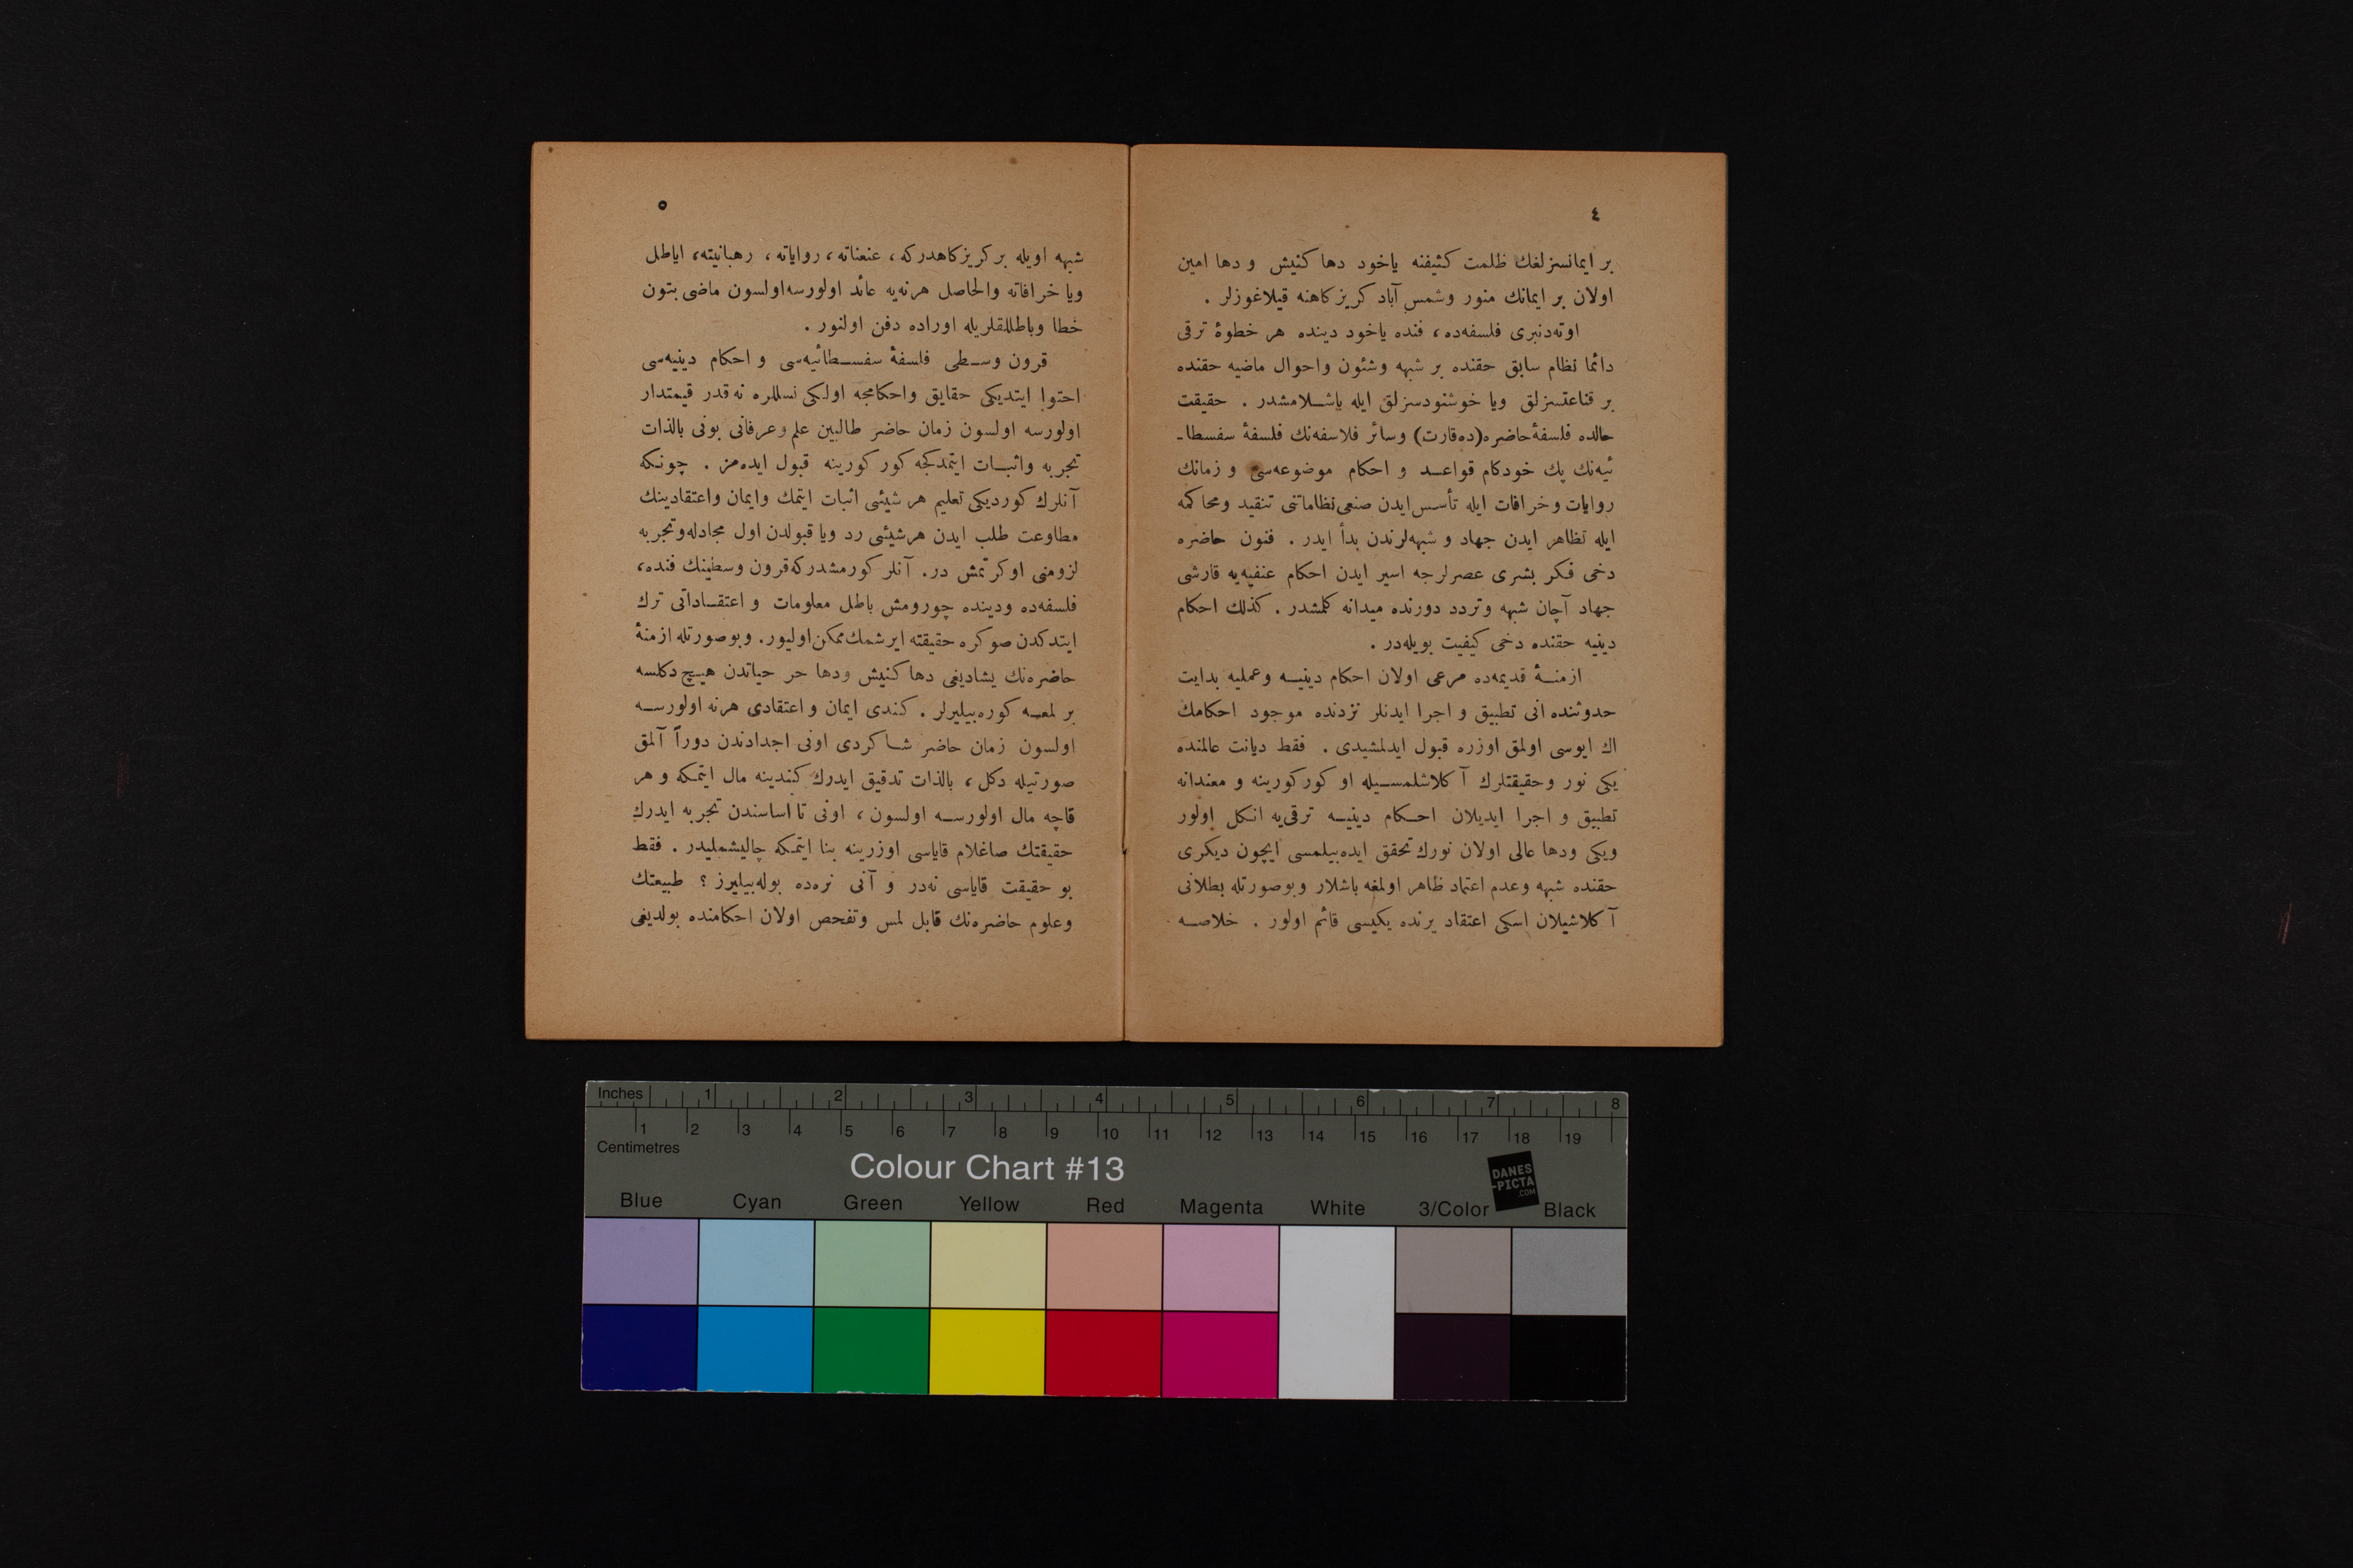 ٤
بر ایمانسزلغك ظلمت كثیفنه یاخود دها كنیش و دها امین
اولان بر ایمانك منور وشمس آباد كریزكاهنه قیلاغوزلر .
اوته‌دنبری فلسفه‌ده، فنده یاخود دینده هر خطوۀ ترقی
دائما نظام سابق حقنده بر شبهه وشئون واحوال ماضیه حقنده
بر قناعتسزلق ویا خوشنودسزلق ایله باشلامشدر . حقیقت
حالده فلسفۀ حاضره (ده‌قارت) وسائر فلاسفه‌نك فلسفۀ سفسطا-
ئیه‌نك پك خودكام قواعد و احكام موضوعه‌سی و زمانك
روایات و خرافات ایله تأسس ایدن صنعی نظاماتنی تنقید ومحاكمه
ایله تظاهر ایدن جهاد و شبهه‌لرندن بدأ ایدر . فنون حاضره
دخی فكر بشری عصرلرجه اسیر ایدن احكام عنفیه‌یه قارشی
جهاد آچان شبهه وتردد دورنده میدانه كلمشدر . كذلك احكام
دینیه حقنده دخی كیفیت بویله‌در .
ازمنۀ قدیمه‌ده مرعی اولان احكام دینیه وعملیه بدایت
حدوثنده انی تطبیق و اجرا ایدنلر نزدنده موجود احكامك
اك ایوسی اولمق اوزره قبول ایدلمشیدی . فقط دیانت عالمنده
یكی نور وحقیقتلرك آكلاشلمسیله او كوركورینه و معندانه
تطبیق و اجرا ایدیلان احكام دینیه ترقی‌یه انكل اولور
ویكی ودها عالی اولان نورك تحقق ایده‌بیلمسی ایچون دیكری
حقنده شبهه وعدم اعتماد ظاهر اولمغه باشلار وبوصورتله بطلانی
آكلاشیلان اسكی اعتقاد یرنده یكیسی قائم اولور . خلاصه
٥
شبهه اویله بر كریزكاهدركه، عنعناته، روایاته، رهبانیته، ایاطل
ویا خرافاته والحاصل هرنه‌یه عائد اولورسه‌اولسون ماضی بتون
خطا وباطللقلریله اوراده دفن اولنور .
قرون وسطی فلسفۀ سفسطائیه‌سی و احكام دینیه‌سی
احتوا ایتدیكی حقایق واحكامجه اولكی نسللره نه‌قدر قیمتدار
اولورسه اولسون زمان حاضر طالبین علم وعرفانی بونی بالذات
تجربه واثبات ایتمدكجه كور كورینه قبول ایده‌مز . چونكه
آنلرك كوردیكی تعلیم هر شیئی اثبات ایتمك وایمان واعتقادینك
مطاوعت طلب ایدن هرشیئی رد ویا قبولدن اول مجادله‌وتجربه
لزومنی اوكرتمش در. آنلر كورمشدركه قرون وسطینك فنده،
فلسفه‌ده ودینده چورومش باطل معلومات و اعتقاداتی ترك
ایتدكدن صوكره حقیقته ایرشمك ممكن اولیور. وبوصورتله ازمنۀ
حاضره‌نك یشادیغی دها كنیش ودها حر حیاتدن هیچ دكلسه
بر لمعه كوره‌بیلیرلر . كندی ایمان و اعتقادی هرنه اولورسه
اولسون زمان حاضر شاكردی اونی اجدادندن دوراً آلمق
صورتیله دكل، بالذات تدقیق ایدرك كندینه مال ایتمكه و هر
قاچه مال اولورسه اولسون، اونی تا اساسندن تجربه ایدرك
حقیقتك صاغلام قایاسی اوزرینه بنا ایتمكه چالیشملیدر . فقط
بو حقیقت قایاسی نه‌در و آنی نره‌ده بوله‌بیلیرز ؟ طبیعتك
وعلوم حاضره‌نك قابل لمس وتفحص اولان احكامنده بولدیغی
Inches 1 2 3 4 5 6 7 8
1 2 3 4 5 6 7 8 9 10 11 12 13 14 15 16 17 18 19
Centimetres
Colour Chart #13
DANES
-PICTA
.COM
Blue Cyan Green Yellow Red Magenta White 3/Color Black